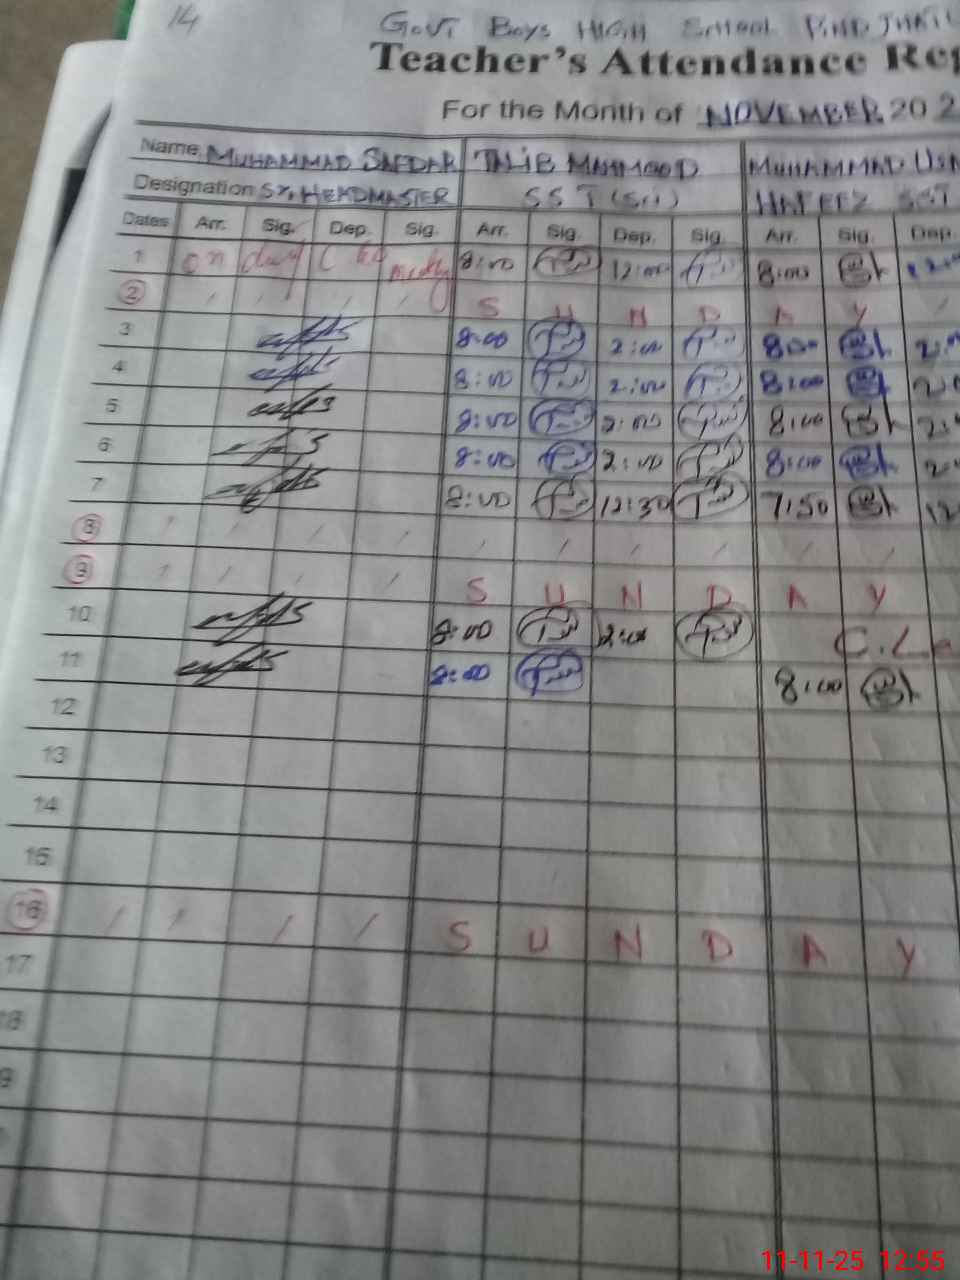 14
GOVT BOYS HIGH SCHOOL PIND
Teacher's Attendance Reg
For the Month of NOVEMBER 202
Name MUHAMMAD SAFDAR TALIB MAHMOOD MUHAMMAD USM
Designation Sr. HEADMASTER SST (Sci) HAFEEZ SST
Dates Arr. Sig. Dep. Sig. Arr. Sig. Dep. Sig. Arr. Sig. Dep.
1 on duty 8:00 12:00 8:00
2 S U N D A Y
3 8:00 2:00 8:00
4 8:00 2:00 8:00
5 8:00 2:00 8:00
6 8:00 2:00 8:00
7 8:00 12:30 7:50 12
8
9 S U N D A Y
10 8:00 2:00 C.L
11 8:00 8:00
12
13
14
15
16 S U N D A Y
17
18
9
11-11-25 12:55